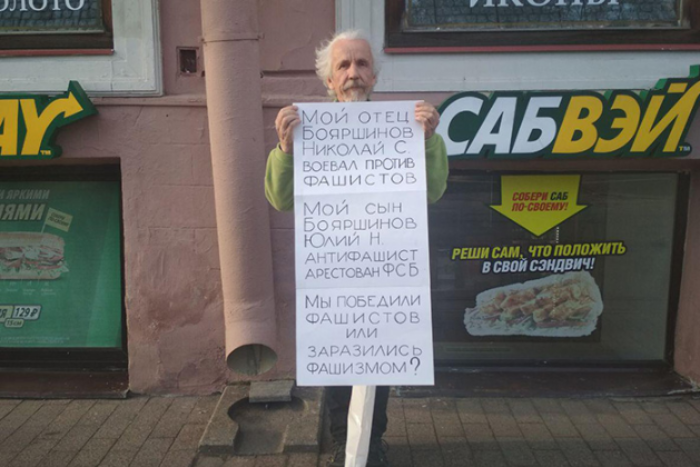 ЗОЛОТО
ИКОНЫ
WAY
САБВЭЙ
МОЙ ОТЕЦ
БОЯРШИНОВ
НИКОЛАЙ С.
ВОЕВАЛ ПРОТИВ
ФАШИСТОВ
МОЙ СЫН
БОЯРШИНОВ
ЮЛИЙ Н.
АНТИФАШИСТ
АРЕСТОВАН ФСБ
МЫ ПОБЕДИЛИ
ФАШИСТОВ
ИЛИ
ЗАРАЗИЛИСЬ
ФАШИЗМОМ?
129 ₽
15 см
СОБЕРИ САБ
ПО-СВОЕМУ!
РЕШИ САМ, ЧТО ПОЛОЖИТЬ
В СВОЙ СЭНДВИЧ!